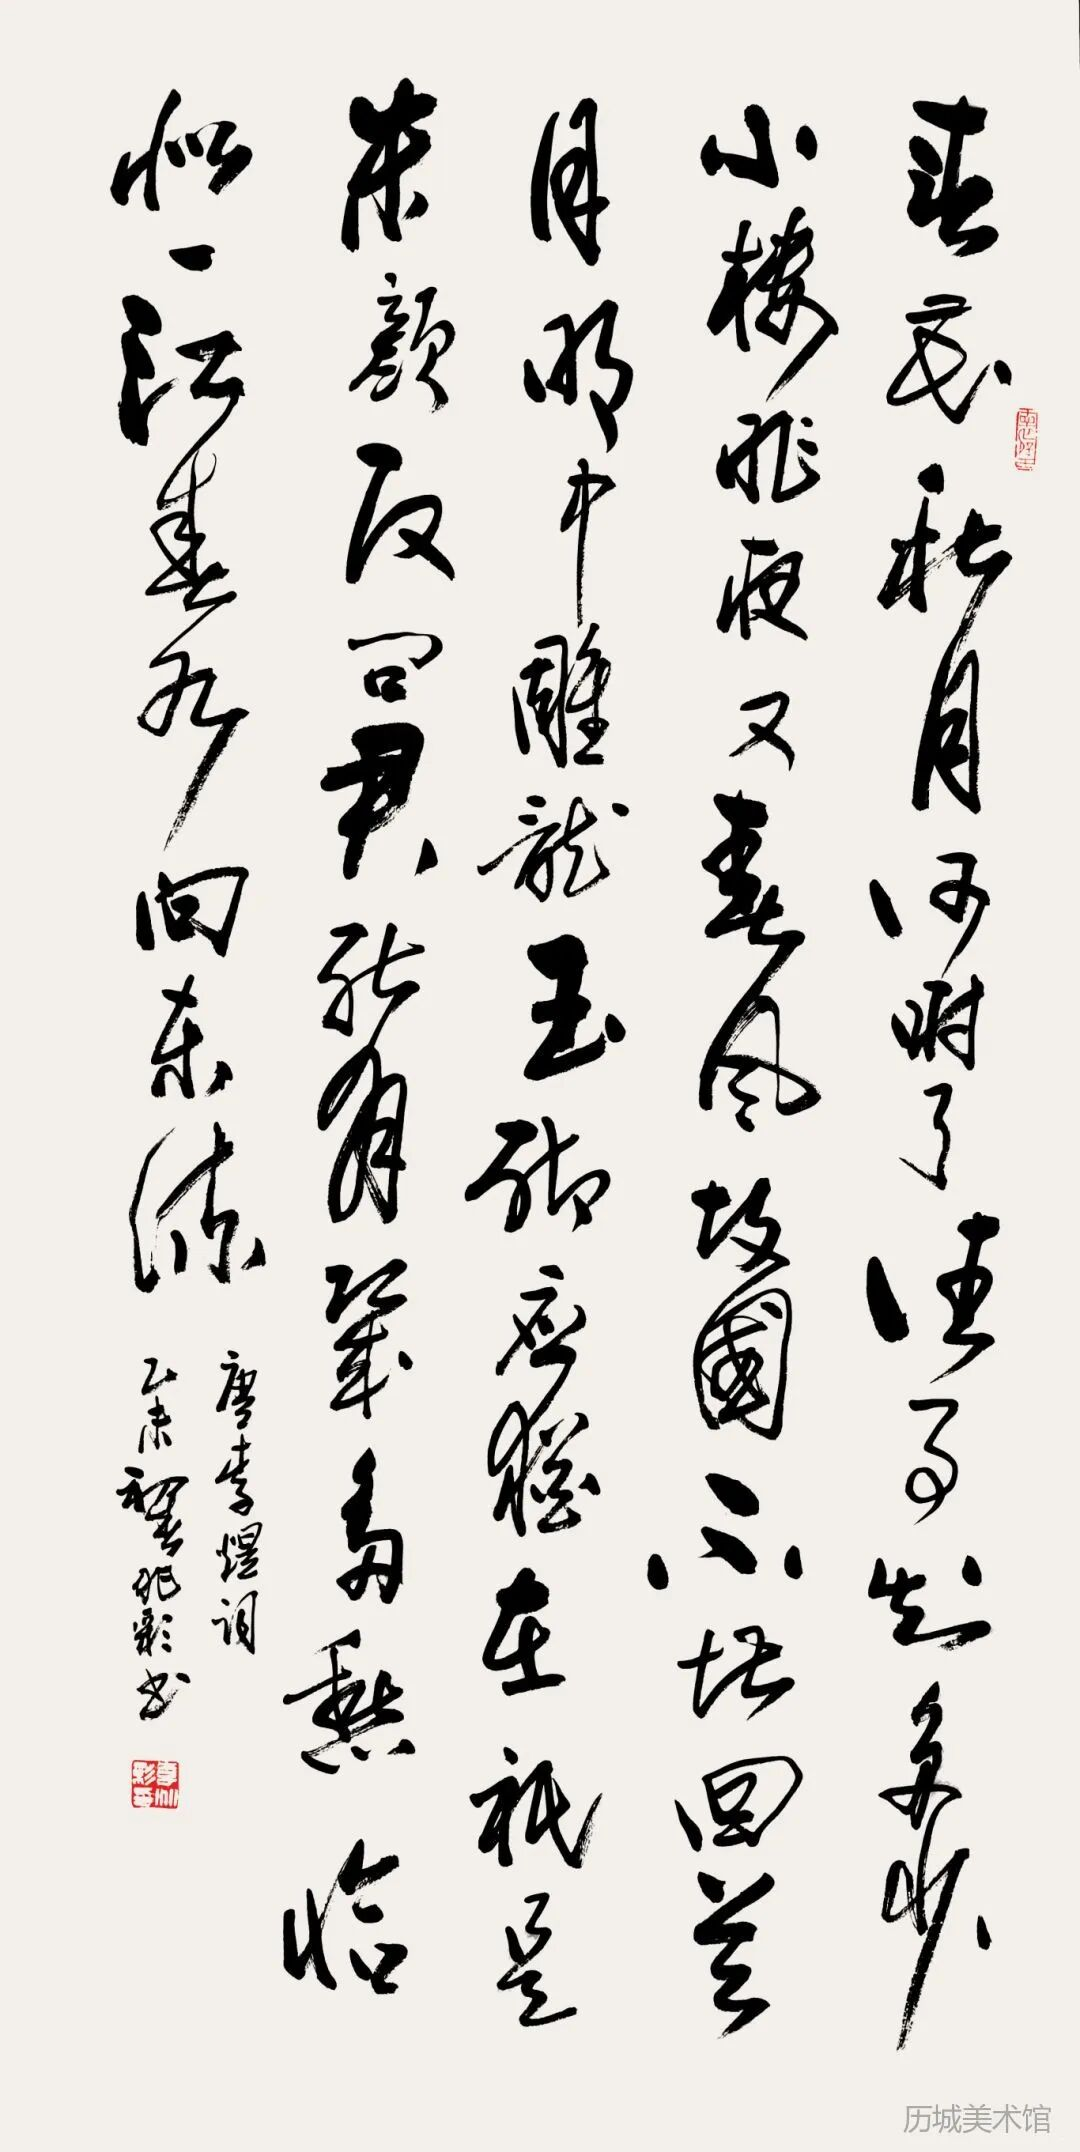 春花秋月何時了往事知多少
小樓昨夜又春風故國不堪回首
月明中雕龍玉砌應猶在祇是
朱顏改問君能有幾多愁恰
似一江春水向東流
唐李煜詞
乙未書
历城美术馆